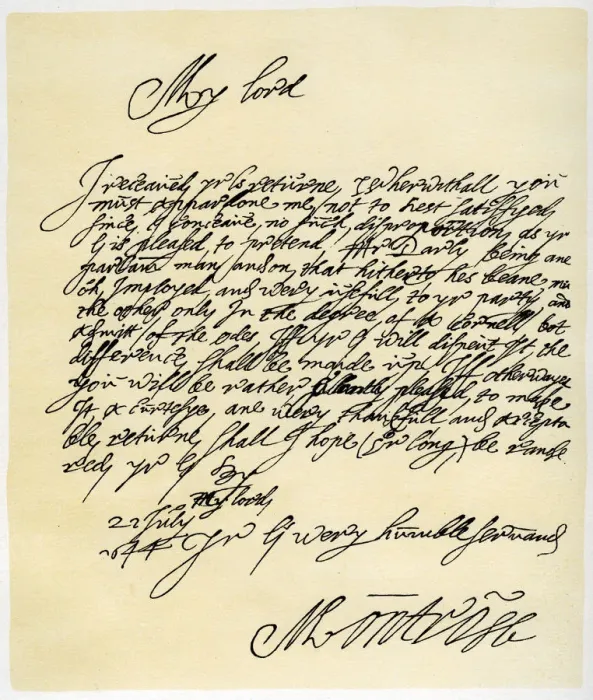 My lord
I receaued yr ls returne, wherwithall you
must apparדone me, not to rest satisfyed,
since, I conceaue, no such disproportion, as yr
l is pleased to pretend Mr Darly being ane
parlam man, and on, that hitherto hes beane, mu
ch Imployed, and wery usfull, to yr party, and
the other only In the degree of a Cornell, but
admitt of the odes, Iff yr l will dispent It, the
difference, shall be, made up, Iff otherwayes
you will be rather pleased, to make
It, a curtesye, ane wery thankfull and accepta
ble, returne, shall I hope (er long) be rande
red, yr l By
My lord,
22 July
1644 Yr ls wery humble servand
Montrose